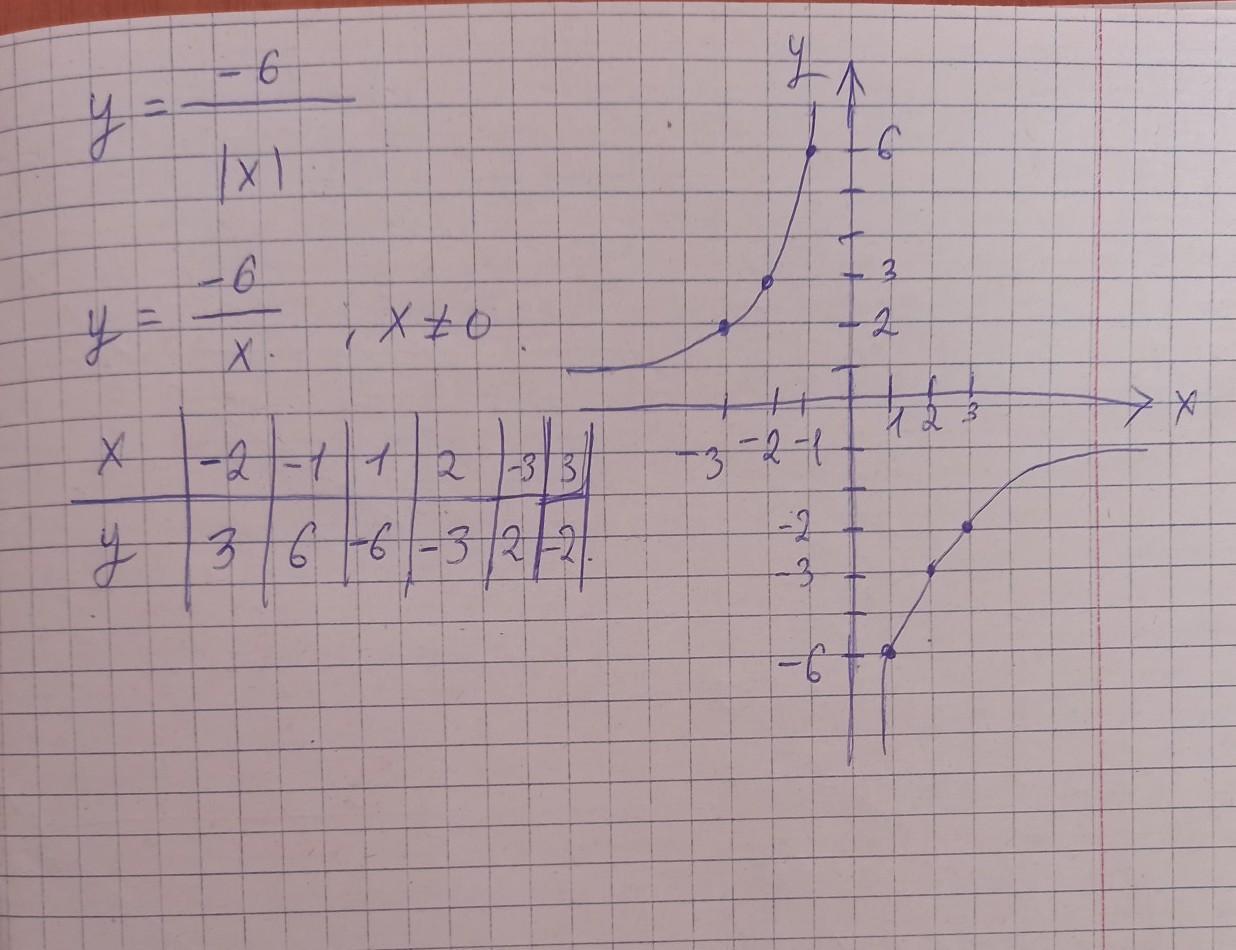 y = -6 / |x|
y = -6 / x , x ≠ 0
x | -2 | -1 | 1 | 2 | -3 | 3
y | 3 | 6 | -6 | -3 | 2 | -2
y
6
3
2
-3 -2 -1 1 2 3 x
-2
-3
-6